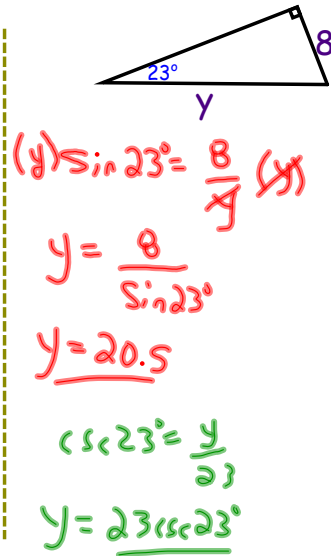 8
23°
y
(y) sin 23° = 8/y (y)
y = 8/sin 23°
y = 20.5
csc 23° = y/23
y = 23 csc 23°